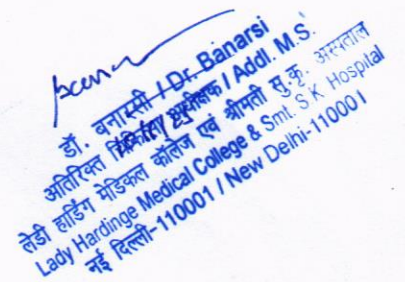 डॉ. बनारसी / Dr. Banarsi
अतिरिक्त चिकित्सा अधीक्षक / Addl. M.S.
लेडी हार्डिंग मेडिकल कॉलेज एवं श्रीमती सु.कृ. अस्पताल
Lady Hardinge Medical College & Smt. S K Hospital
नई दिल्ली-110001 / New Delhi-110001